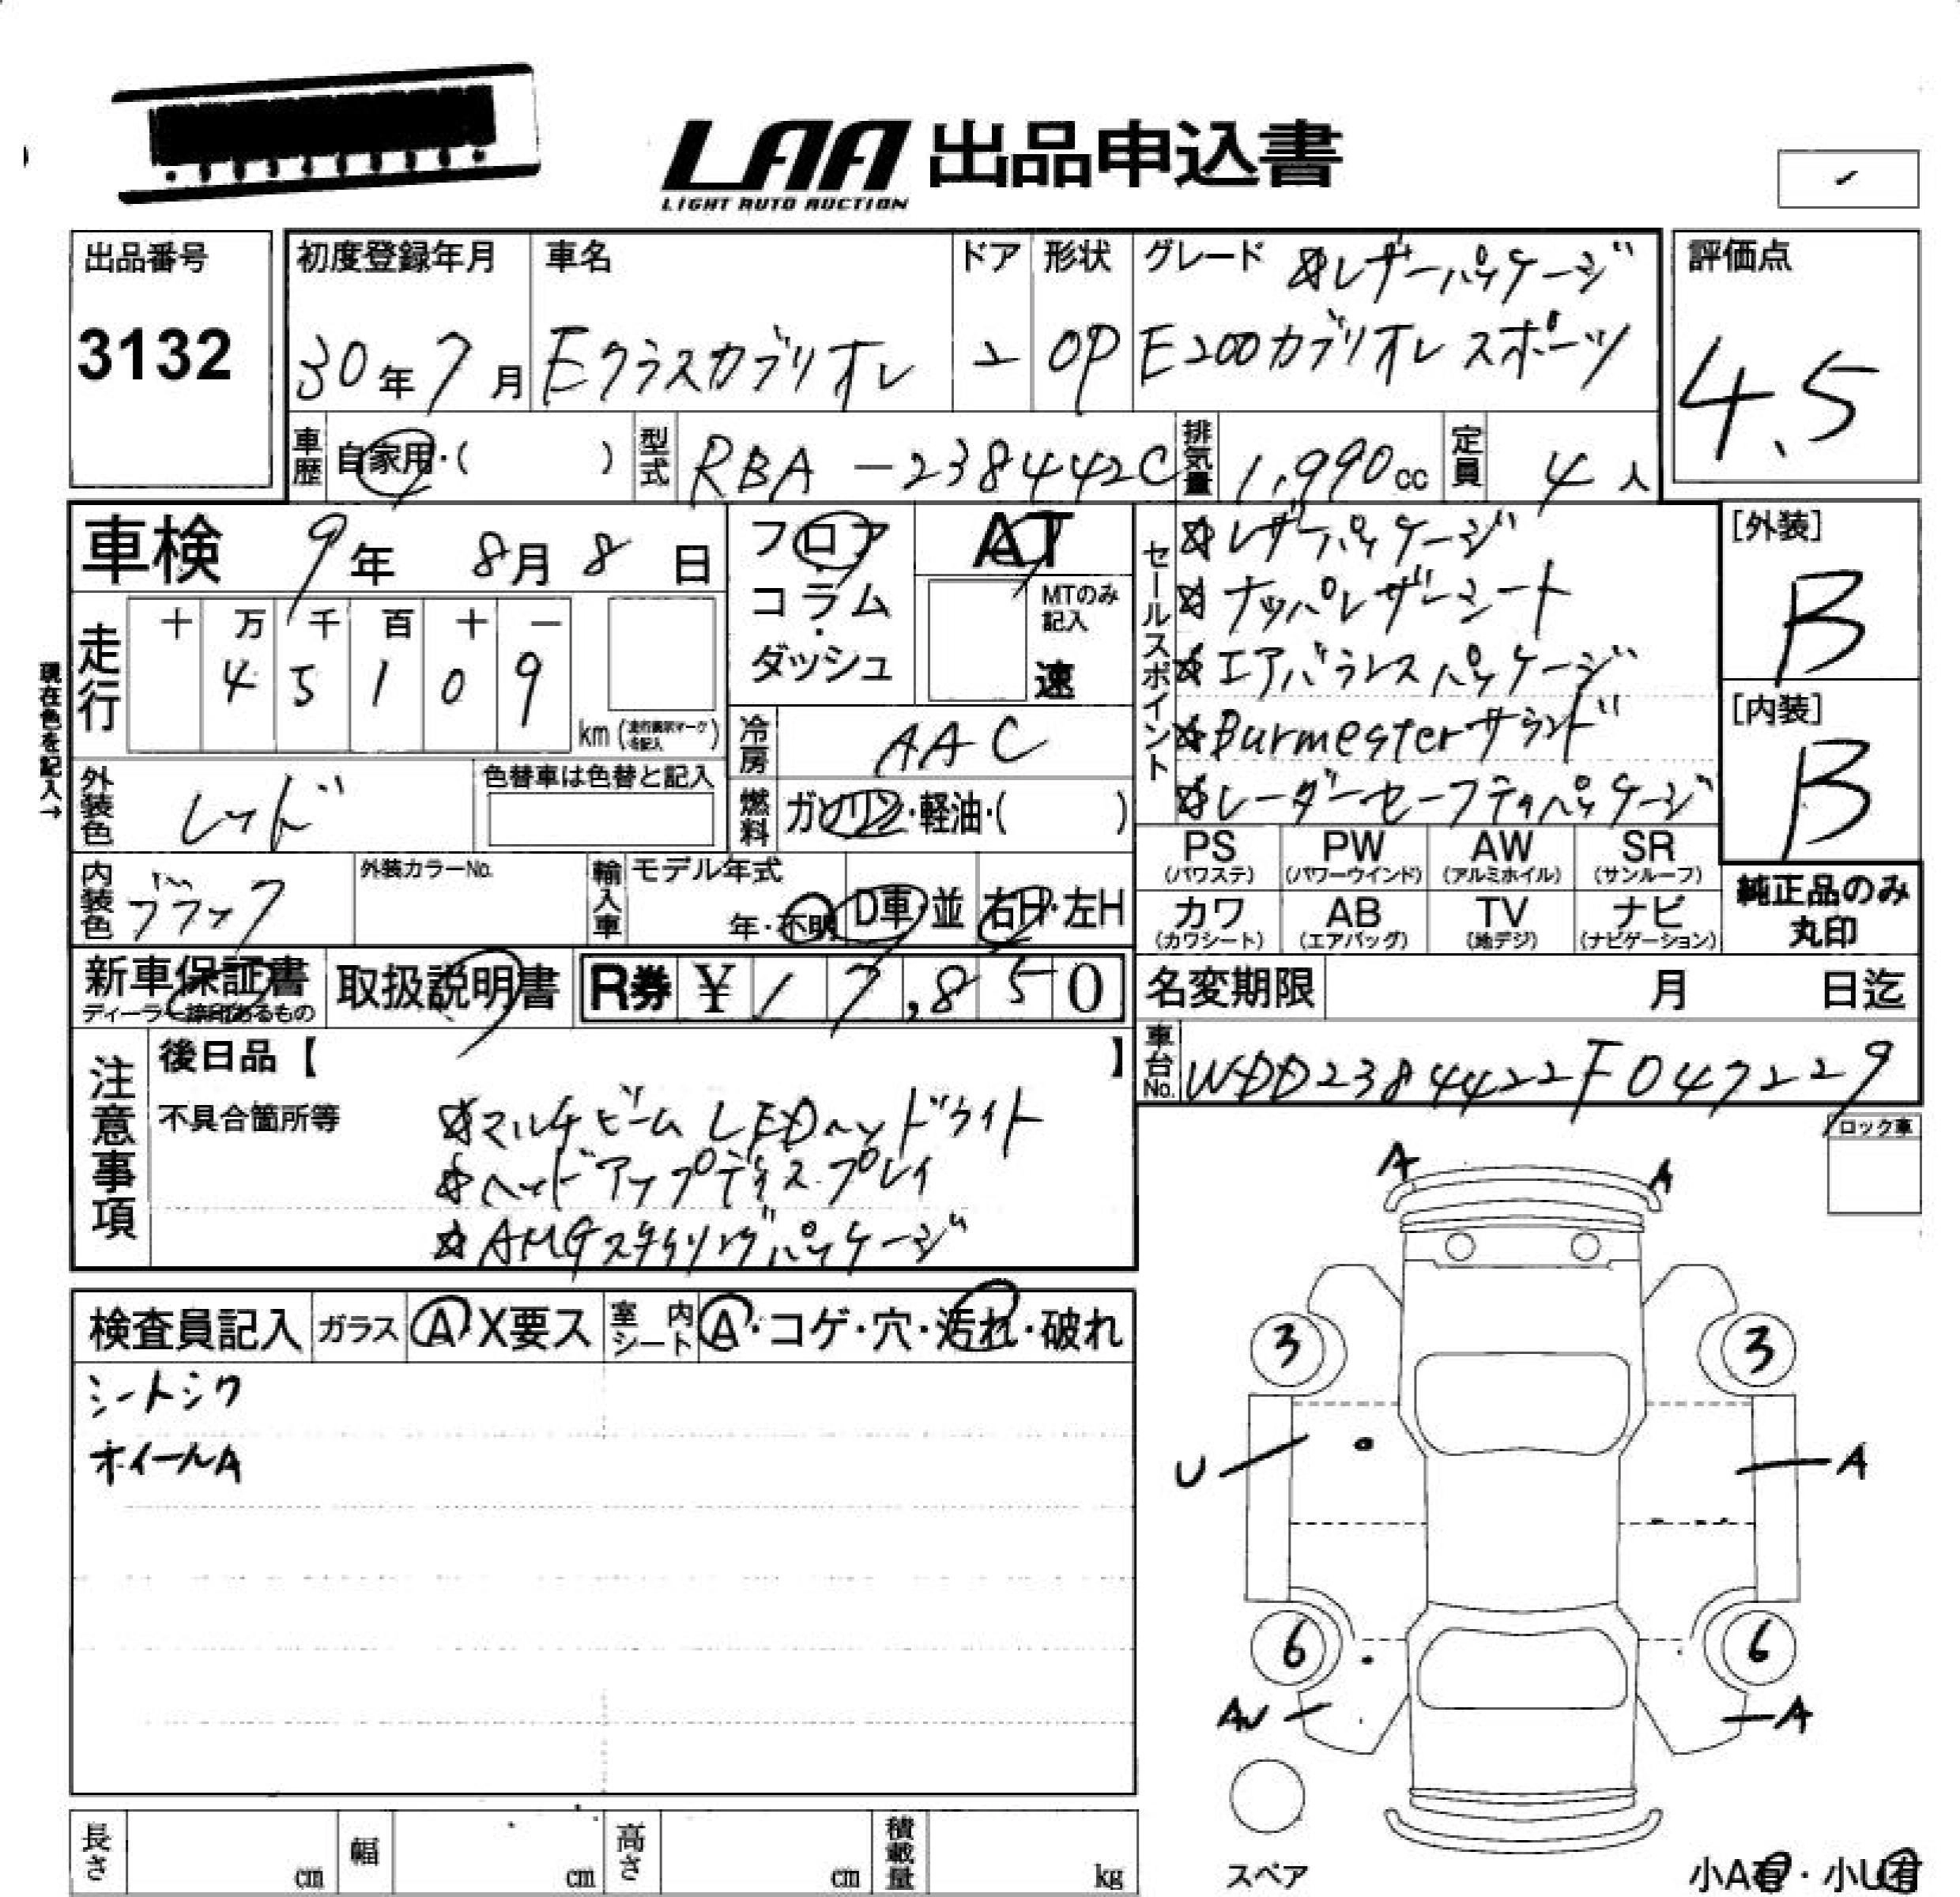 LAA 出品申込書
LIGHT AUTO AUCTION
出品番号
3132
初度登録年月
30年7月
車名
Eクラスカブリオレ
ドア
2
形状
OP
グレード ☆レザーパッケージ
E200カブリオレ スポーツ
評価点
4.5
車歴 自家用・( )
型式 RBA-238442C
排気量 1,990cc
定員 4人
車検 9年 8月 8日
フロア・コラム・ダッシュ
AT
MTのみ記入
速
走行 十 万 千 百 十 一
4 5 1 0 9
km
現在色を記入→
冷房 AAC
外装色 レッド
色替車は色替と記入
燃料 ガソリン・軽油・( )
内装色 ブラック
外装カラーNo.
輸入車 モデル年式
年・不明 D車・並 右H・左H
セールスポイント
☆レザーパッケージ
☆ナッパレザーシート
☆エアバランスパッケージ
☆Burmesterサウンド
☆レーダーセーフティパッケージ
[外装]
B
[内装]
B
PS (パワステ) PW (パワーウインド) AW (アルミホイル) SR (サンルーフ)
カワ (カワシート) AB (エアバッグ) TV (地デジ) ナビ (ナビゲーション)
純正品のみ
丸印
新車保証書
取扱説明書
R券 ¥17,850
名変期限 月 日迄
車台No. WDD2384422F047229
注意事項
後日品【 】
不具合箇所等
☆マルチビームLEDヘッドライト
☆ヘッドアップディスプレイ
☆AMGスタイリングパッケージ
ロック車
検査員記入 ガラス A・X要ス 室内シート A・コゲ・穴・汚れ・破れ
シートシワ
ホイールA
A A
3 3
U A
6 6
AU A
スペア
小A有・小U有
長さ cm 幅 cm 高さ cm 積載量 kg